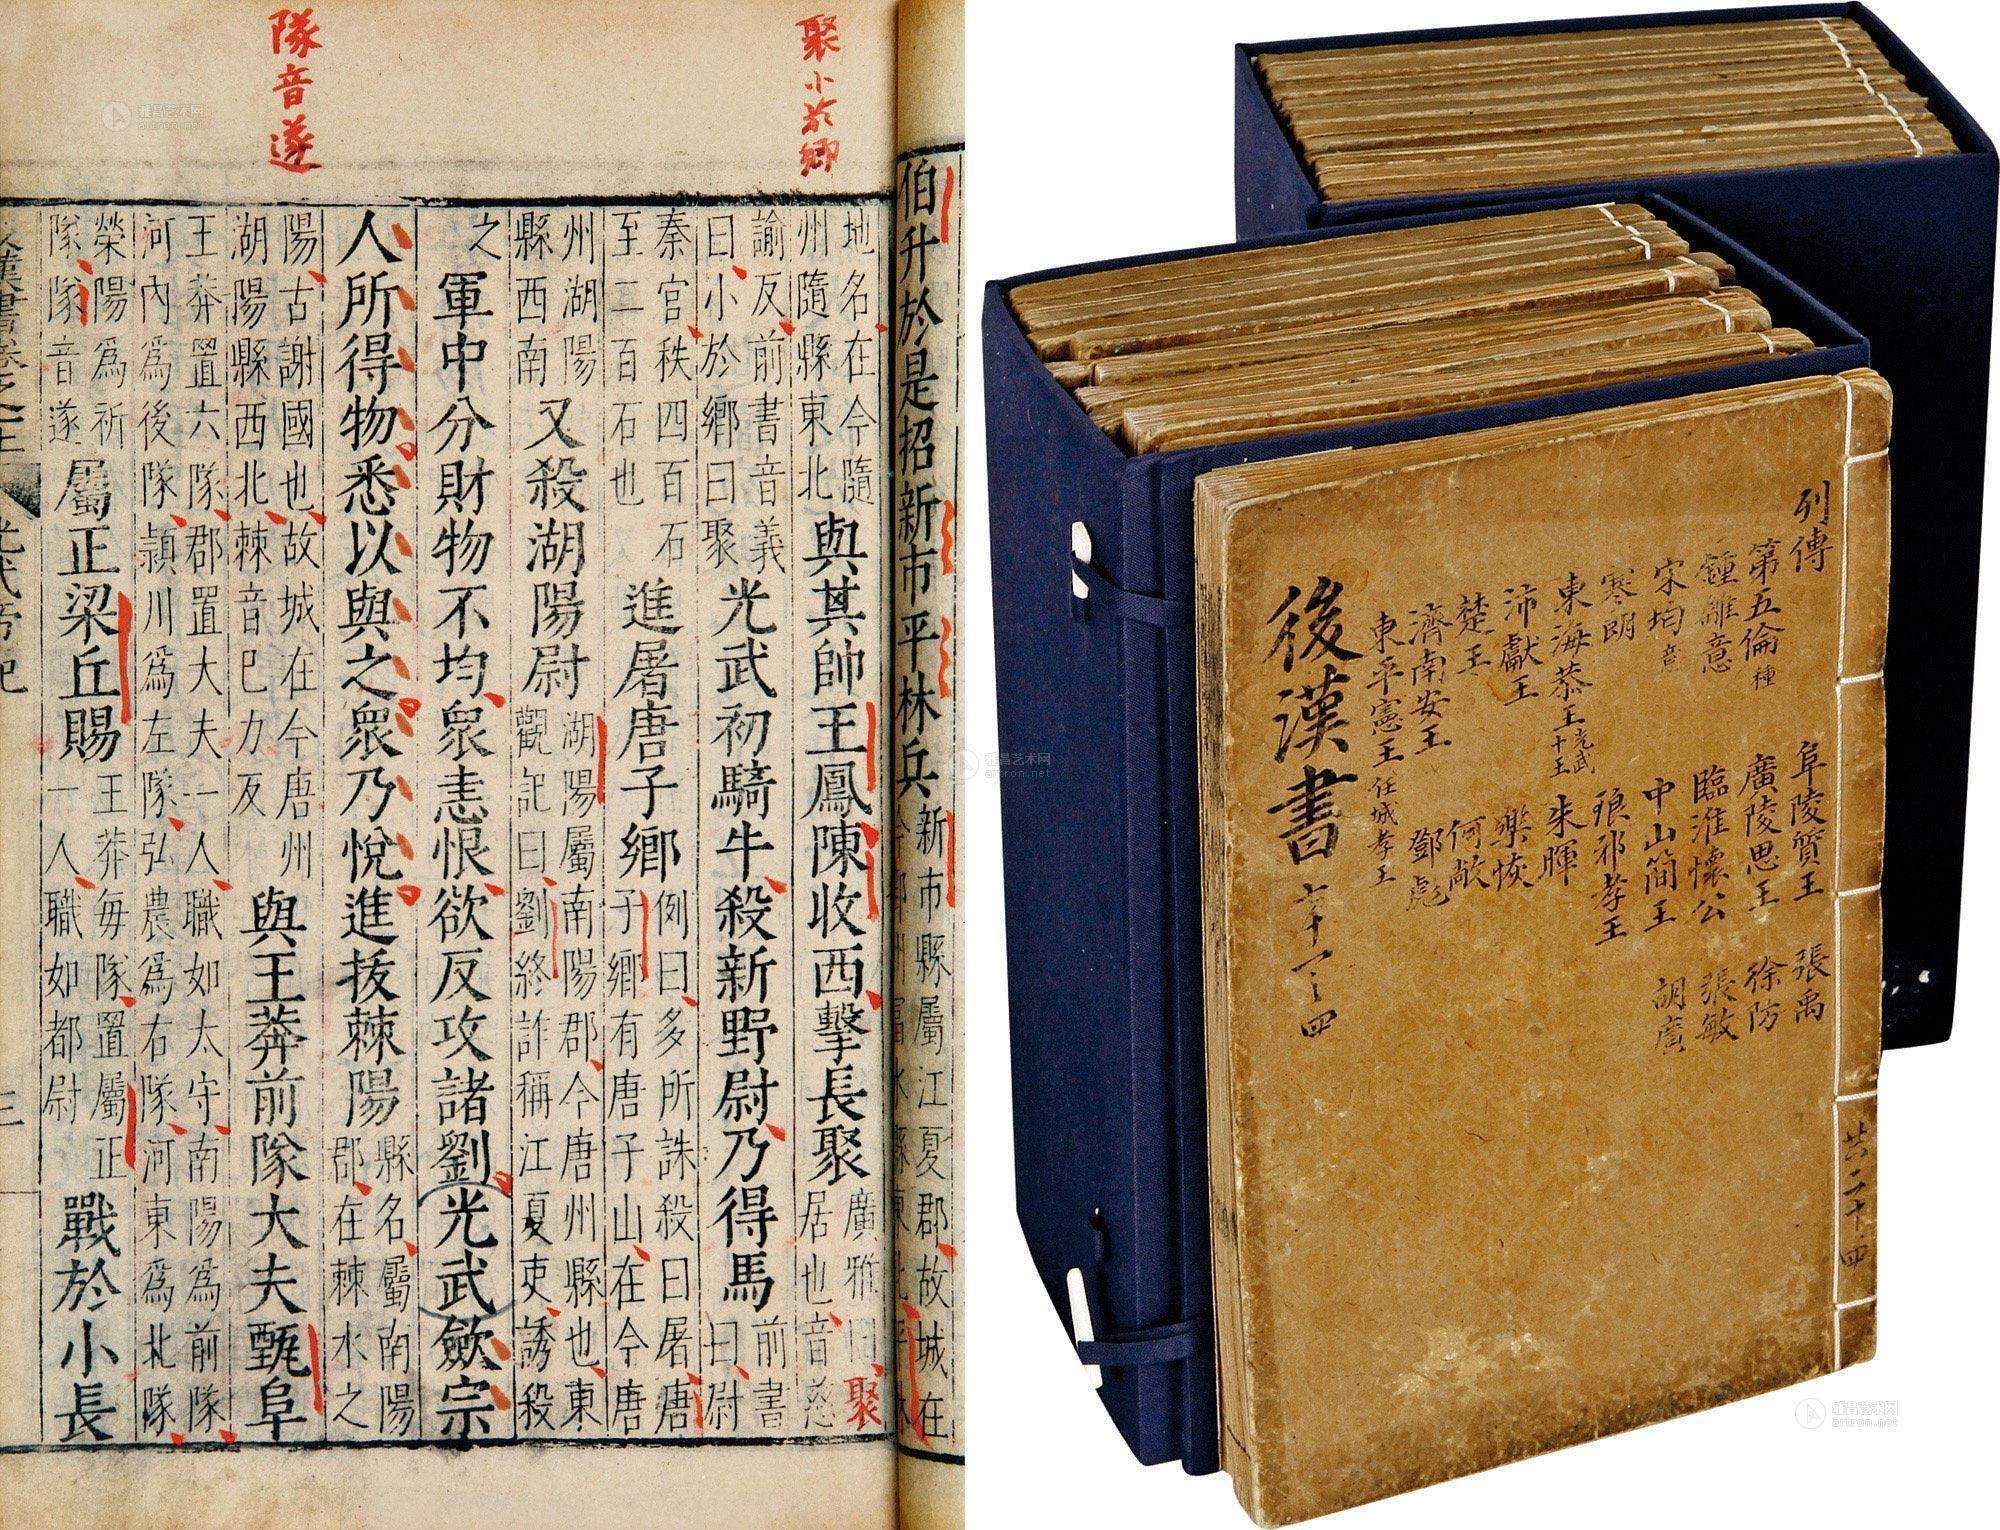 聚小於鄉
隊音遂
伯升於是招新市平林兵新市縣屬江夏郡故城在
地名在今隨州隨縣東北與其帥王鳳陳收西擊長聚廣雅曰聚居也音慈
諭反前書音義曰小於鄉曰聚光武初騎牛殺新野尉乃得馬前書曰尉
秦官秩四百石至二百石也進屠唐子鄉例曰多所誅殺曰屠唐子鄉有唐子山在今唐
州湖陽縣西南又殺湖陽尉湖陽屬南陽郡今唐州縣也東觀記曰劉終詐稱江夏吏誘殺
之軍中分財物不均衆恚恨欲反攻諸劉光武歛宗
人所得物悉以與之衆乃悅進拔棘陽縣名屬南陽郡在棘水之
陽古謝國也故城在今唐州湖陽縣西北棘音己力反與王莽前隊大夫甄阜
王莽置六隊郡置大夫一人職如太守南陽為前隊河內為後隊潁川為左隊弘農為右隊河東為北隊
榮陽為祈隊隊音遂屬正梁丘賜王莽每隊置屬正一人職如都尉戰於小長
三
共二十四
列傳
第五倫 種
鍾離意
宋均 音
寒朗
東海恭王 光武十王
沛獻王
楚王
濟南安王
東平憲王 任城孝王
阜陵質王
廣陵思王
臨淮懷公
中山簡王
琅邪孝王
朱暉
樂恢
何敞
鄧彪
張禹
徐防
張敏
胡廣
後漢書
雅昌艺术网
artron.net